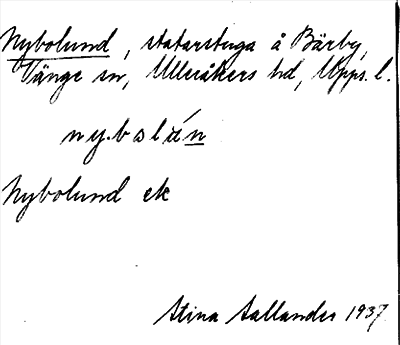 Nybolund, statarstuga å Bärby,
Vänge sn, Ulleråkers hd, Upps. l.
ny.bolún
Nybolund ek
Stina Sallander 1937